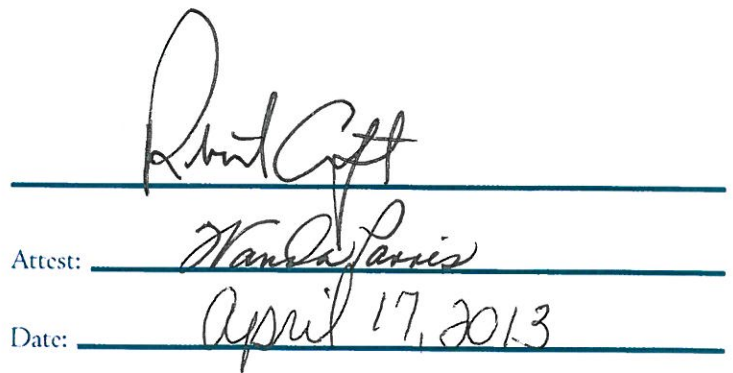 Robert Croft
Attest: Wanda Parris
Date: April 17, 2013